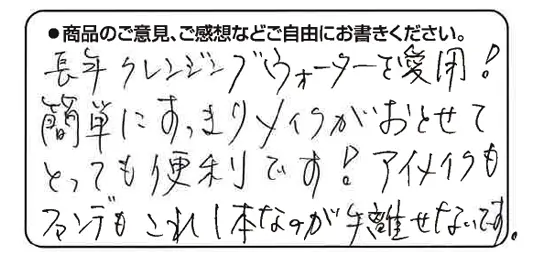 ●商品のご意見、ご感想などご自由にお書きください。
長年クレンジングウォーターを愛用!
簡単にすっきりメイクがおとせて
とっても便利です!アイメイクも
ファンデもこれ1本なのが手離せないです。